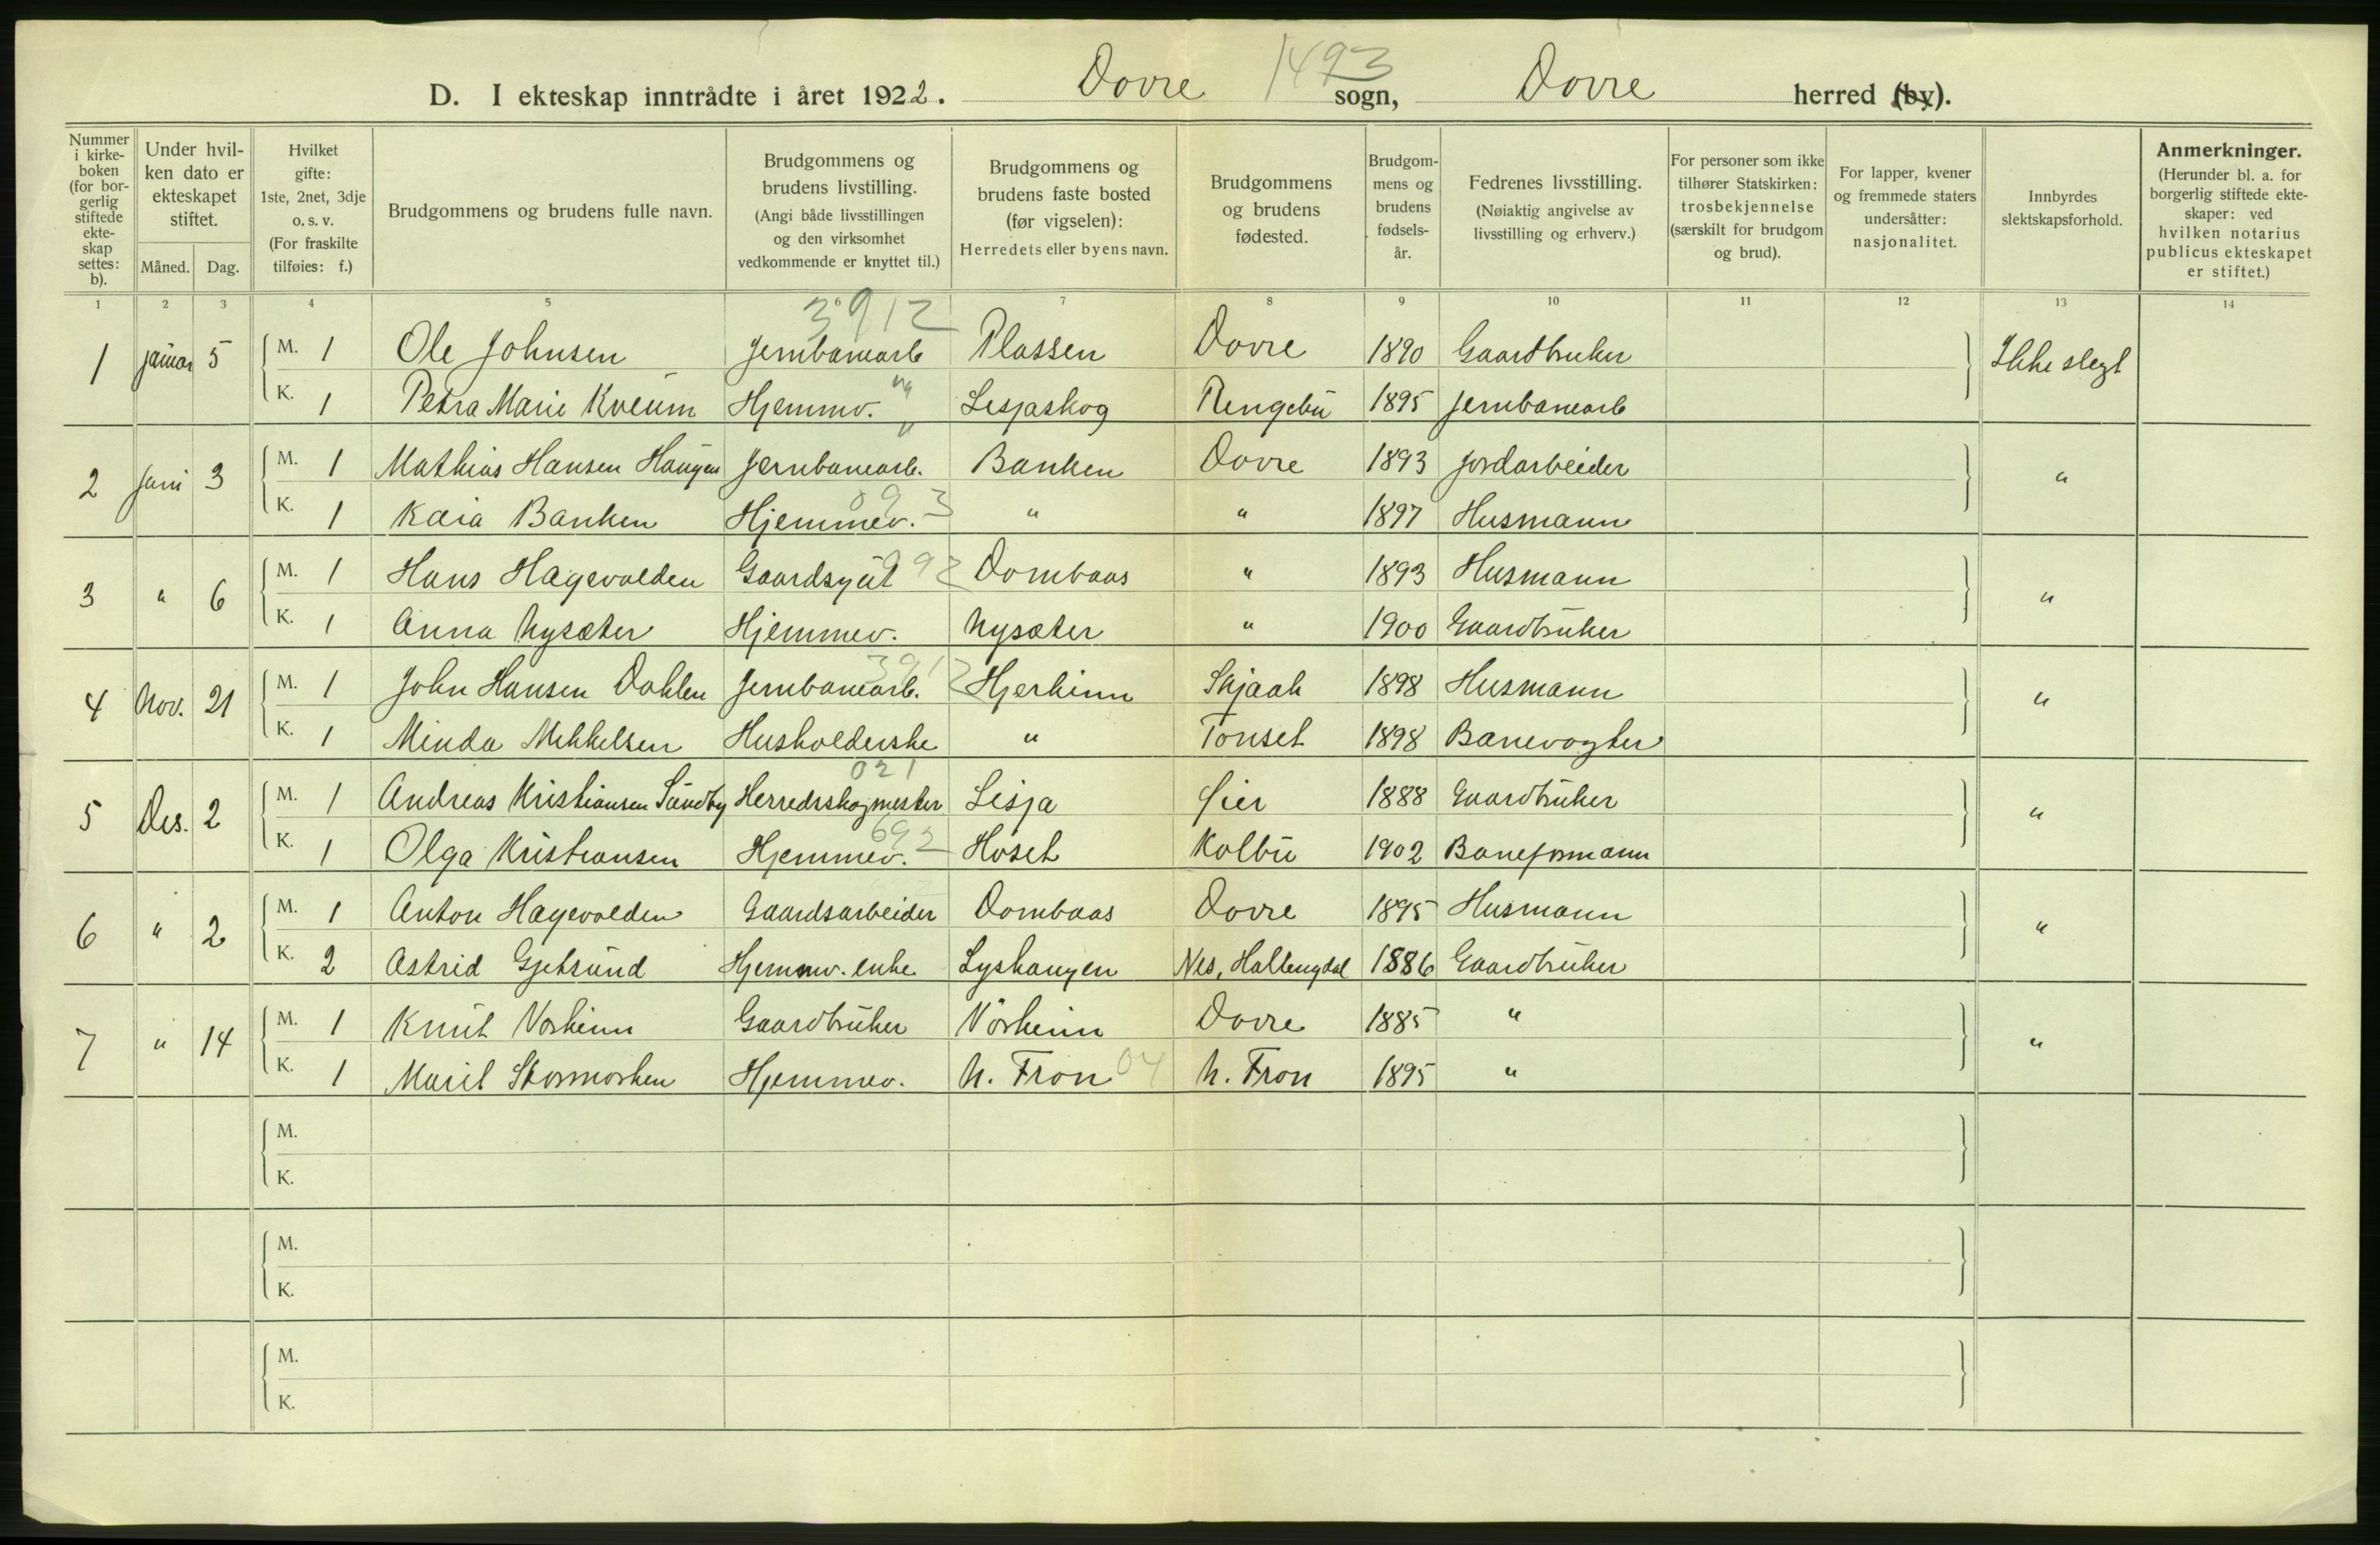 1493
D. I ekteskap inntrådte i året 1922. Dovre sogn, Dovre herred (by).
Nummer i kirkeboken (for borgerlig stiftede ekteskap settes: b).
Under hvilken dato er ekteskapet stiftet.
Måned. Dag.
Hvilket gifte: 1ste, 2net, 3dje o. s. v. (For fraskilte tilføies: f.)
Brudgommens og brudens fulle navn.
Brudgommens og brudens livstilling. (Angi både livsstillingen og den virksomhet vedkommende er knyttet til.)
Brudgommens og brudens faste bosted (før vigselen): Herredets eller byens navn.
Brudgommens og brudens fødested.
Brudgommens og brudens fødselsår.
Fedrenes livsstilling. (Nøiaktig angivelse av livsstilling og erhverv.)
For personer som ikke tilhører Statskirken: trosbekjennelse (særskilt for brudgom og brud).
For lapper, kvener og fremmede staters undersåtter: nasjonalitet.
Innbyrdes slektskapsforhold.
Anmerkninger. (Herunder bl. a. for borgerlig stiftede ekteskaper: ved hvilken notarius publicus ekteskapet er stiftet.)
1 2 3 4 5 6 7 8 9 10 11 12 13 14
3912
1 januar 5 M. 1 Ole Johnsen Jernbanearb Plassen Dovre 1890 Gaardbruker Ikke slegt
K. 1 Petra Marie Kveum Hjemmv. Lesjaskog Ringebu 1895 Jernbanearb
2 Juni 3 M. 1 Mathias Hansen Haugen Jernbanearb. Banken Dovre 1893 Jordarbeider "
K. 1 Kaia Banken Hjemmev. " " 1897 Husmann
3 " 6 M. 1 Hans Hagevolden Gaardsgut Dombaas " 1893 Husmann "
K. 1 Anna Nysæter Hjemmev. Nysæter " 1900 Gaardbruker
3912
4 Nov. 21 M. 1 John Hansen Dahlen Jernbanearb. Hjerkinn Skjaak 1898 Husmann "
K. 1 Minda Mekkelsen Husholderske " Tonset 1898 Banevogter
021
5 Des. 2 M. 1 Andreas Kristiansen Sundby Herredskogmester Lesja Øier 1888 Gaardbruker "
692
K. 1 Olga Kristiansen Hjemmev. Hoset Kolbu 1902 Baneformann
6 " 2 M. 1 Anton Hagevolden Gaardsarbeider Dombaas Dovre 1895 Husmann "
K. 2 Astrid Gjetsund Hjemmv. enke Lyshaugen Nes, Hallingdal 1886 Gaardbruker
7 " 14 M. 1 Knut Vorkinn Gaardbruker Vorkinn Dovre 1885 " "
K. 1 Marit Stormorken Hjemmev. N. Fron 04 N. Fron 1895 "
M.
K.
M.
K.
M.
K.